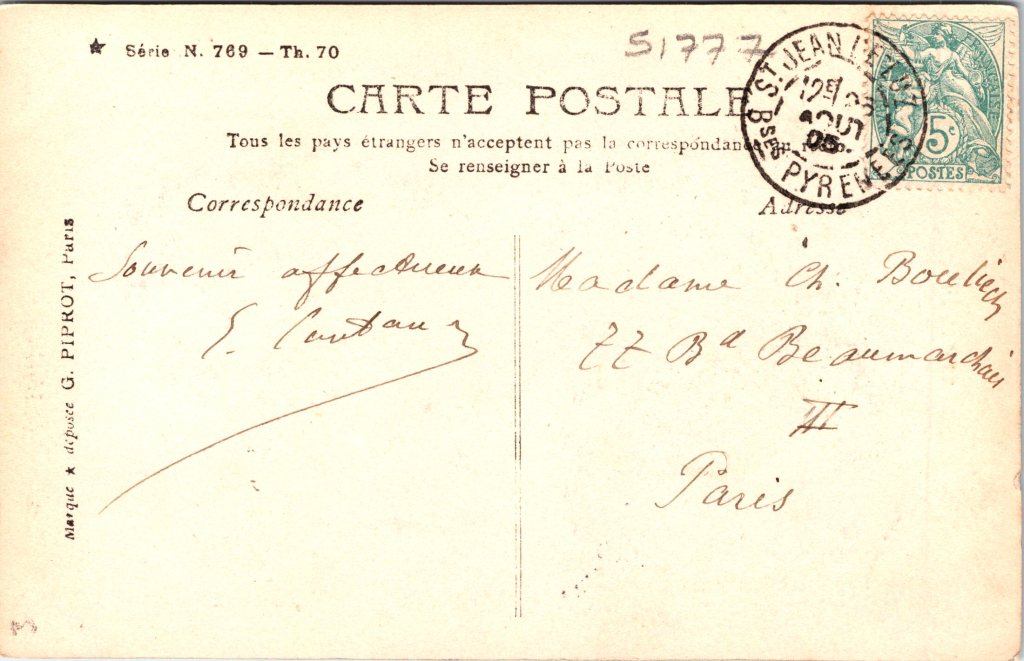 ★ Série N. 769 — Th. 70
51777
CARTE POSTALE
Tous les pays étrangers n'acceptent pas la correspondance au recto.
Se renseigner à la Poste
Correspondance
Adresse
ST JEAN DE LUZ
12E
AOUT
05
BSES PYRENEES
5c
POSTES
Souvenir affectueux
Madame Ch.
77 Bd Beaumarchais
III
Paris
Marque ★ déposée G. PIPROT, Paris